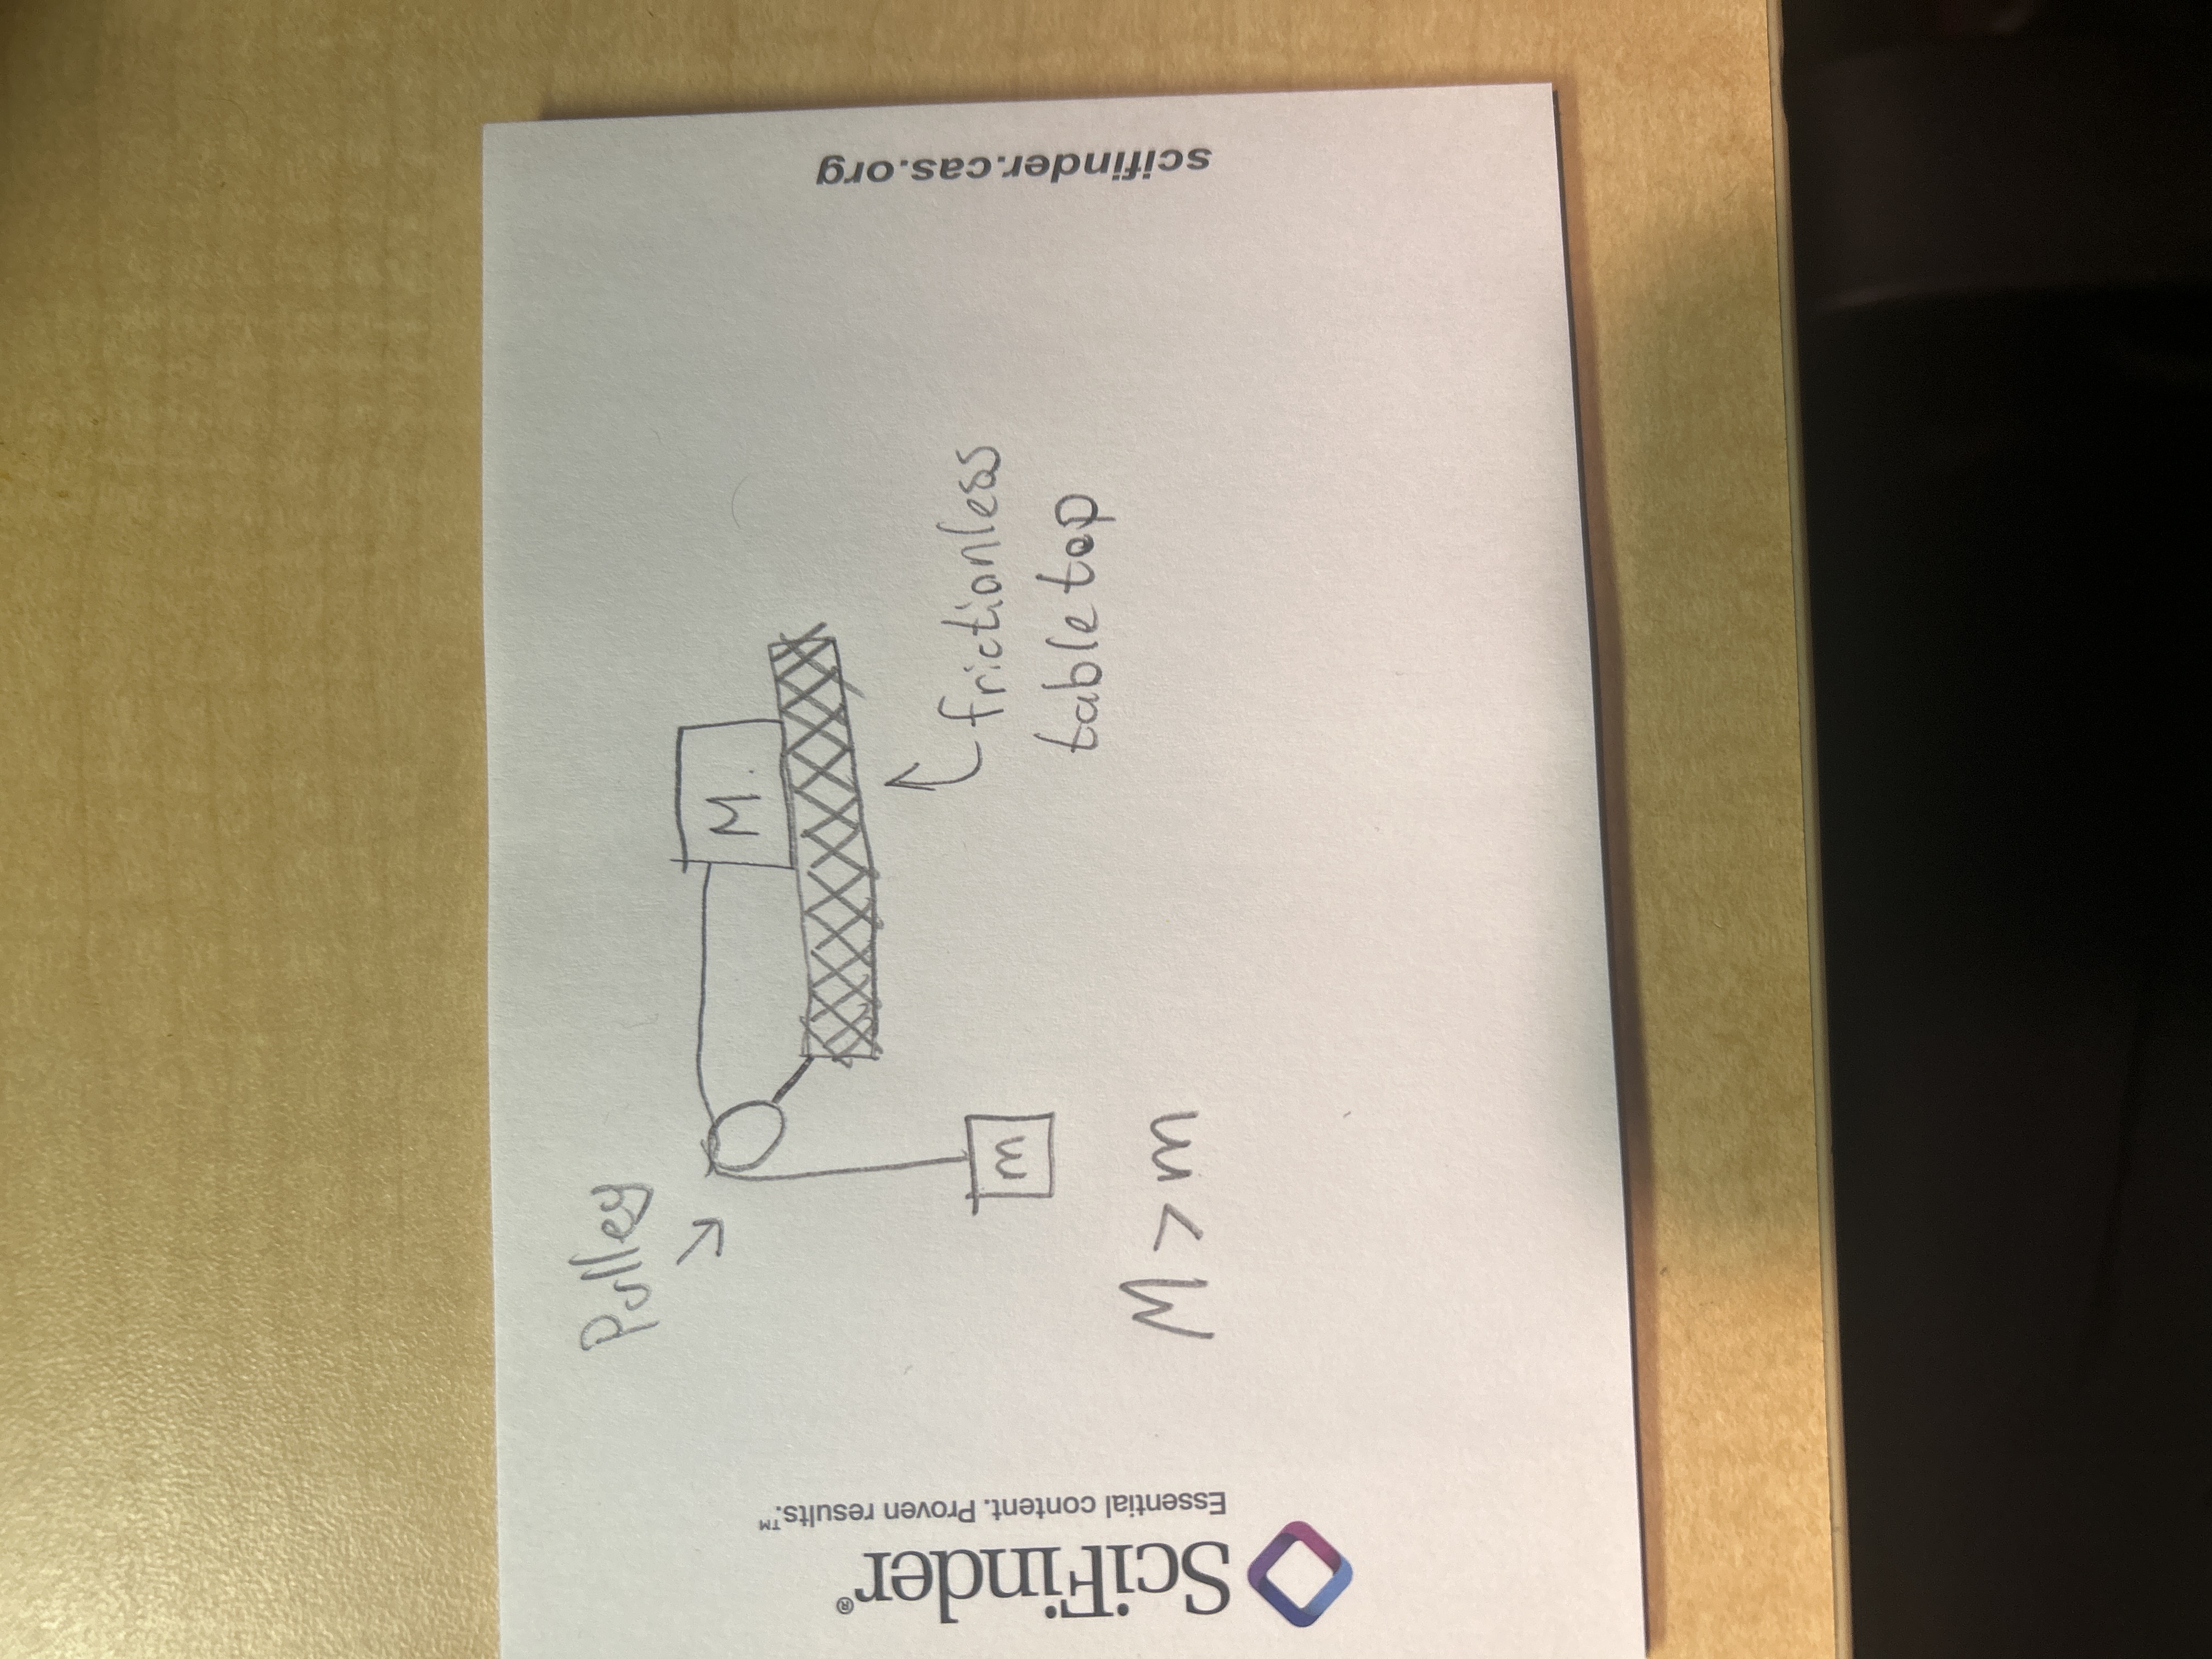 SciFinder®
Essential content. Proven results.™
Pulley
M.
m
frictionless
tabletop
M > m
scifinder.cas.org